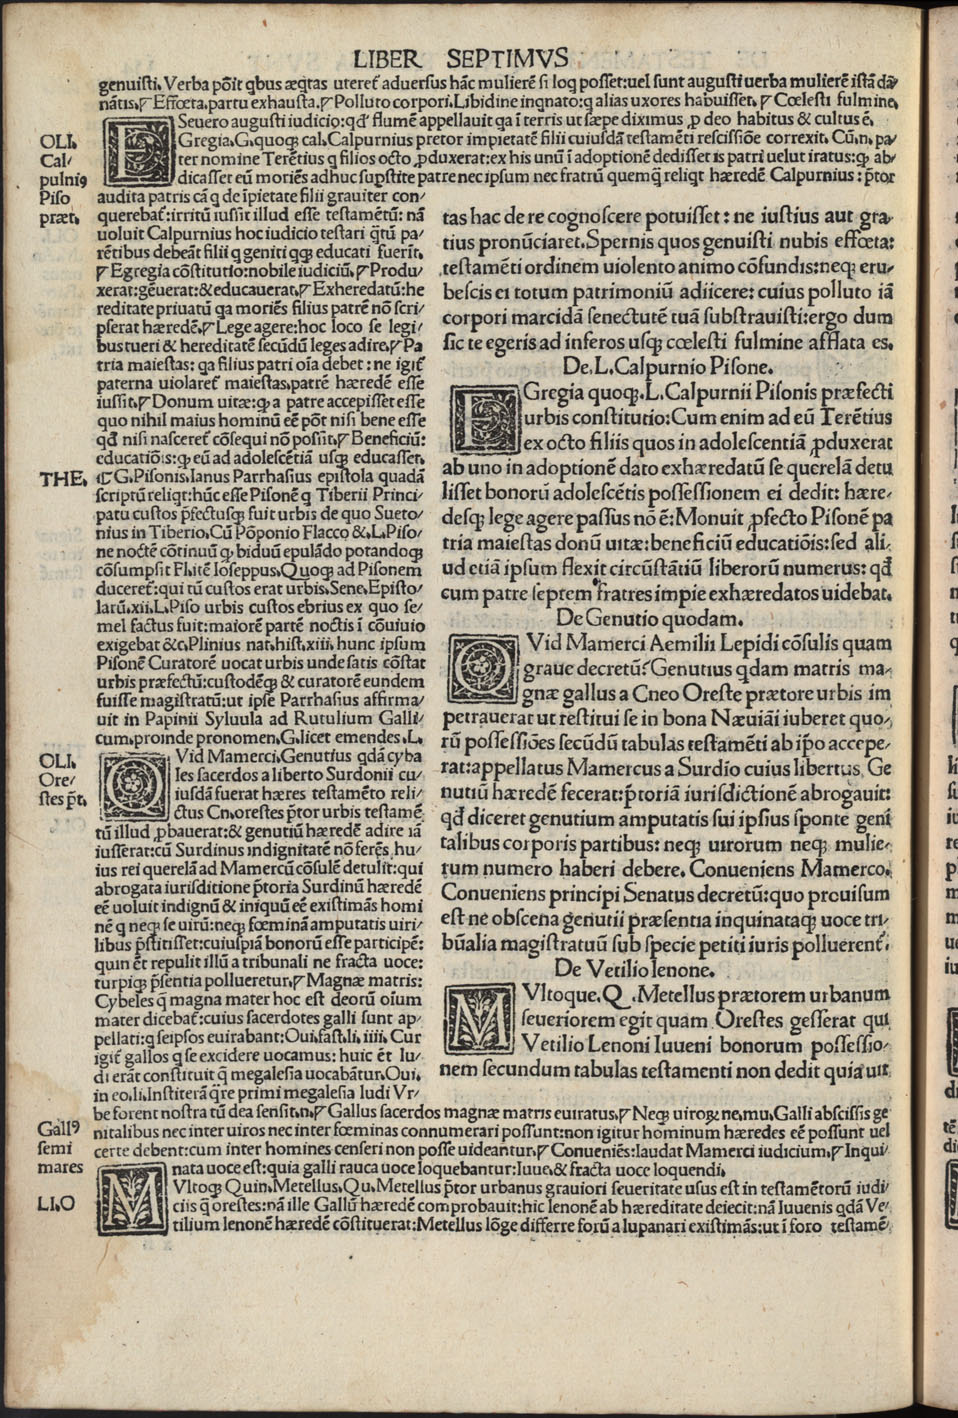 LIBER SEPTIMVS
genuisti. Verba põit qbus æqtas uteret̃ aduersus hãc mulierẽ si loq posset: uel sunt augusti uerba mulierẽ istã dã/
nãtis. Effœta. partu exhausta. Polluto corpori. Libidine inqnato: q alias uxores habuisset. Cœlesti fulmine.
Seuero augusti iudicio: qđ flumẽ appellauit qa ĩ terris ut sæpe diximus ꝓ deo habitus & cultus ẽ.
OLI.
Cal/
pulniꝰ
Piso
præt.
EGregia. G. quoqꝫ cal. Calpurnius pretor impietatẽ filii cuiusdã testamẽti rescissiõe correxit. Cũ. n. pa/
ter nomine Terẽtius q filios octo ꝓduxerat: ex his unũ ĩ adoptionẽ dedisset is patri uelut iratus: qꝫ ab/
dicasset eũ moriẽs adhuc supstite patre nec ipsum nec fratrũ quemq̃ reliqt hæredẽ Calpurnius: p̃tor
audita patris cã q de ĩpietate filii grauiter con/
querebat̃: irritũ iussit illud esse testamẽtũ: nã
uoluit Calpurnius hoc iudicio testari q̃tũ pa/
rẽtibus debeãt filii q geniti qꝫ educati fuerĩt.
Egregia cõstitutio: nobile iudiciũ. Produ/
xerat: gẽuerat: & educauerat. Exheredatũ: he
reditate priuatũ qa moriẽs filius patrẽ nõ scri/
pserat hæredẽ. Lege agere: hoc loco se legi/
bus tueri & hereditatẽ secũdũ leges adire. Pa
tria maiestas: qa filius patri oĩa debet: ne igit̃
paterna uiolaret̃ maiestas. patrẽ hæredẽ esse
iussit. Donum uitæ: qꝫ a patre accepisset esse
quo nihil maius hominũ eẽ põt nisi bene esse
qđ nisi nasceret̃ cõsequi nõ posset. Beneficiũ:
educatiõis: qꝫ eũ ad adolescẽtiã usqꝫ educasset.
THE.
G. Pisonis. Ianus Parrhasius epistola quadã
scriptũ reliqt: hũc esse Pisonẽ q Tiberii Princi/
patu custos p̃fectusqꝫ fuit urbis de quo Sueto/
nius in Tiberio. Cũ Põponio Flacco &. L. Piso/
ne noctẽ cõtinuũ qꝫ biduũ epulãdo potandoqꝫ
cõsumpsit Fl. itẽ Ioseppus. Quoqꝫ ad Pisonem
duceret̃: qui tũ custos erat urbis. Sene. Episto/
larũ. xii. L. Piso urbis custos ebrius ex quo se/
mel factus fuit: maiorẽ partẽ noctis ĩ cõuiuio
exigebat &c. Plinius nat. hist. xiii. hunc ipsum
Pisonẽ Curatorẽ uocat urbis unde satis cõstat
urbis præfectũ: custodẽqꝫ & curatorẽ eundem
fuisse magistratũ: ut ipse Parrhasius affirma/
uit in Papinii Syluula ad Rutulium Galli/
cum. proinde pronomen. G. licet emendes. L.
OLI.
Ore/
stes p̃t.
QVid Mamerci. Genutius qdã cyba
les sacerdos a liberto Surdonii cu/
iusdã fuerat hæres testamẽto reli/
ctus Cn. orestes p̃tor urbis testamẽ
tũ illud ꝓbauerat: & genutiũ hæredẽ adire iã
iusserat: cũ Surdinus indignitatẽ nõ ferẽs hu/
ius rei querelã ad Mamercũ cõsulẽ detulit: qui
abrogata iurisditione p̃toria Surdinũ hæredẽ
eẽ uoluit indignũ & iniquũ eẽ existimãs homi
nẽ q neqꝫ se uirũ: neqꝫ fœminã amputatis uiri/
libus p̃stitisset: cuiuspiã bonorũ esse participẽ:
quin ẽt repulit illũ a tribunali ne fracta uoce:
turpiqꝫ p̃sentia pollueretur. Magnæ matris:
Cybeles q̃ magna mater hoc est deorũ oĩum
mater dicebat̃: cuius sacerdotes galli sunt ap/
pellati: q seipsos euirabant: Oui. fast. li. iiii. Cur
igit̃ gallos q se excidere uocamus: huic ẽt lu/
di erãt constituit q̃ megalesia uocabãtur. Oui.
in eo. li. Institerã q̃re primi megalesia ludi Vr/
tas hac de re cognoscere potuisset: ne iustius aut gra/
tius pronũciaret. Spernis quos genuisti nubis effœta:
testamẽti ordinem uiolento animo cõfundis: neqꝫ eru/
bescis ei totum patrimoniũ adiicere: cuius polluto iã
corpori marcidã senectutẽ tuã substrauisti: ergo dum
sic te egeris ad inferos usqꝫ cœlesti fulmine afflata es.
De. L. Calpurnio Pisone.
EGregia quoqꝫ. L. Calpurnii Pisonis præfecti
urbis constitutio: Cum enim ad eũ Terẽtius
ex octo filiis quos in adolescentiã ꝓduxerat
ab uno in adoptionẽ dato exhæredatũ se querelã detu
lisset bonorũ adolescẽtis possessionem ei dedit: hære/
desqꝫ lege agere passus nõ ẽ: Monuit ꝓfecto Pisonẽ pa
tria maiestas donũ uitæ: beneficiũ educatiõis: sed ali/
ud etiã ipsum flexit circũstãtiũ liberorũ numerus: qđ
cum patre septem fratres impie exhæredatos uidebat.
De Genutio quodam.
QVid Mamerci Aemilii Lepidi cõsulis quam
graue decretũ? Genutius qdam matris ma/
gnæ gallus a Cneo Oreste prætore urbis im
petrauerat ut restitui se in bona Næuiãi iuberet quo/
rũ possessiões secũdũ tabulas testamẽti ab ip̃o accepe/
rat: appellatus Mamercus a Surdio cuius libertus Ge
nutiũ hæredẽ fecerat: p̃toriã iurisdictionẽ abrogauit:
qđ diceret genutium amputatis sui ipsius sponte geni
talibus corporis partibus: neqꝫ uirorum neqꝫ mulie/
rum numero haberi debere. Conueniens Mamerco.
Conueniens principi Senatus decretũ: quo prouisum
est ne obscena genutii præsentia inquinataqꝫ uoce tri/
bũalia magistratuũ sub specie petiti iuris polluerent̃.
De Vetilio lenone.
MVltoque. Q. Metellus prætorem urbanum
seueriorem egit quam Orestes gesserat qui
Vetilio Lenoni Iuueni bonorum possessio/
nem secundum tabulas testamenti non dedit quia uir
be forent nostra tũ dea sensit. n. Gallus sacerdos magnæ matris euiratus. Neqꝫ uiroꝝ ne. mu. Galli abscissis ge
Gallꝰ
semi
mares
nitalibus nec inter uiros nec inter fœminas connumerari possunt: non igitur hominum hæredes eẽ possunt uel
certe debent: cum inter homines censeri non posse uideantur. Conueniẽs: laudat Mamerci iudicium. Inqui/
nata uoce est: quia galli rauca uoce loquebantur: Iuue. & fracta uoce loquendi.
LIO
MVltoqꝫ Quin. Metellus. Qu. Metellus p̃tor urbanus grauiori seueritate usus est in testamẽtorũ iudi/
ciis q̃ orestes: nã ille Gallũ hæredẽ comprobauit: hic lenonẽ ab hæreditate deiecit: nã Iuuenis qdã Ve/
tilium lenonẽ hæredẽ cõstituerat: Metellus lõge differre forũ a lupanari existimãs: ut ĩ foro testamẽ/